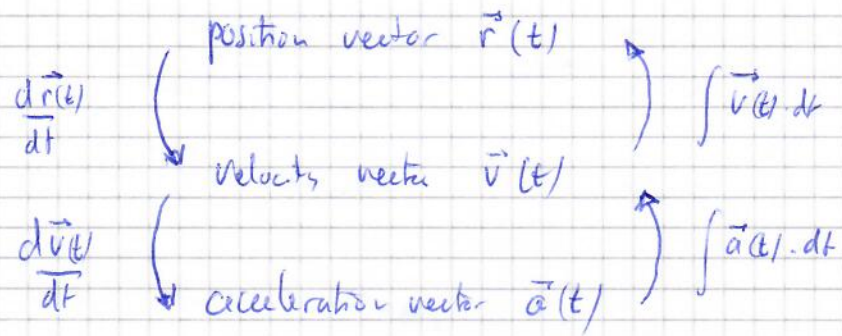 position vector r⃗(t)
dr⃗(t)/dt
∫ v⃗(t).dt
velocity vector v⃗(t)
dv⃗(t)/dt
∫ a⃗(t).dt
acceleration vector a⃗(t)